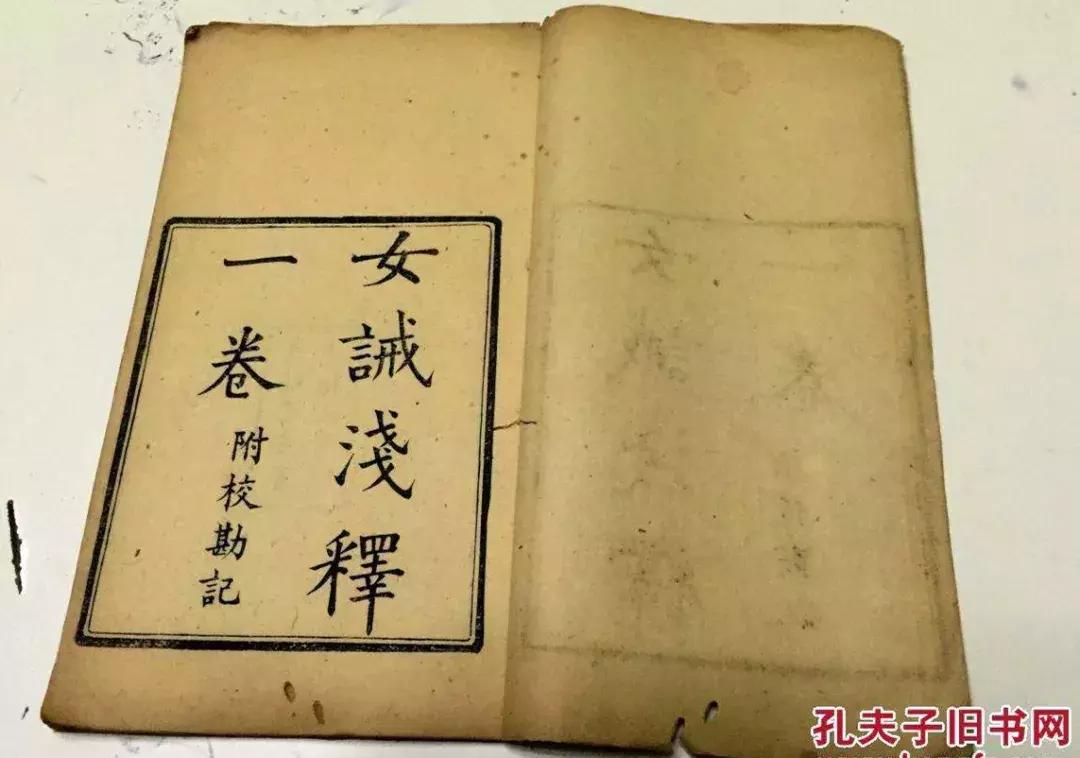 女誡淺釋
一卷附校勘記
孔夫子旧书网